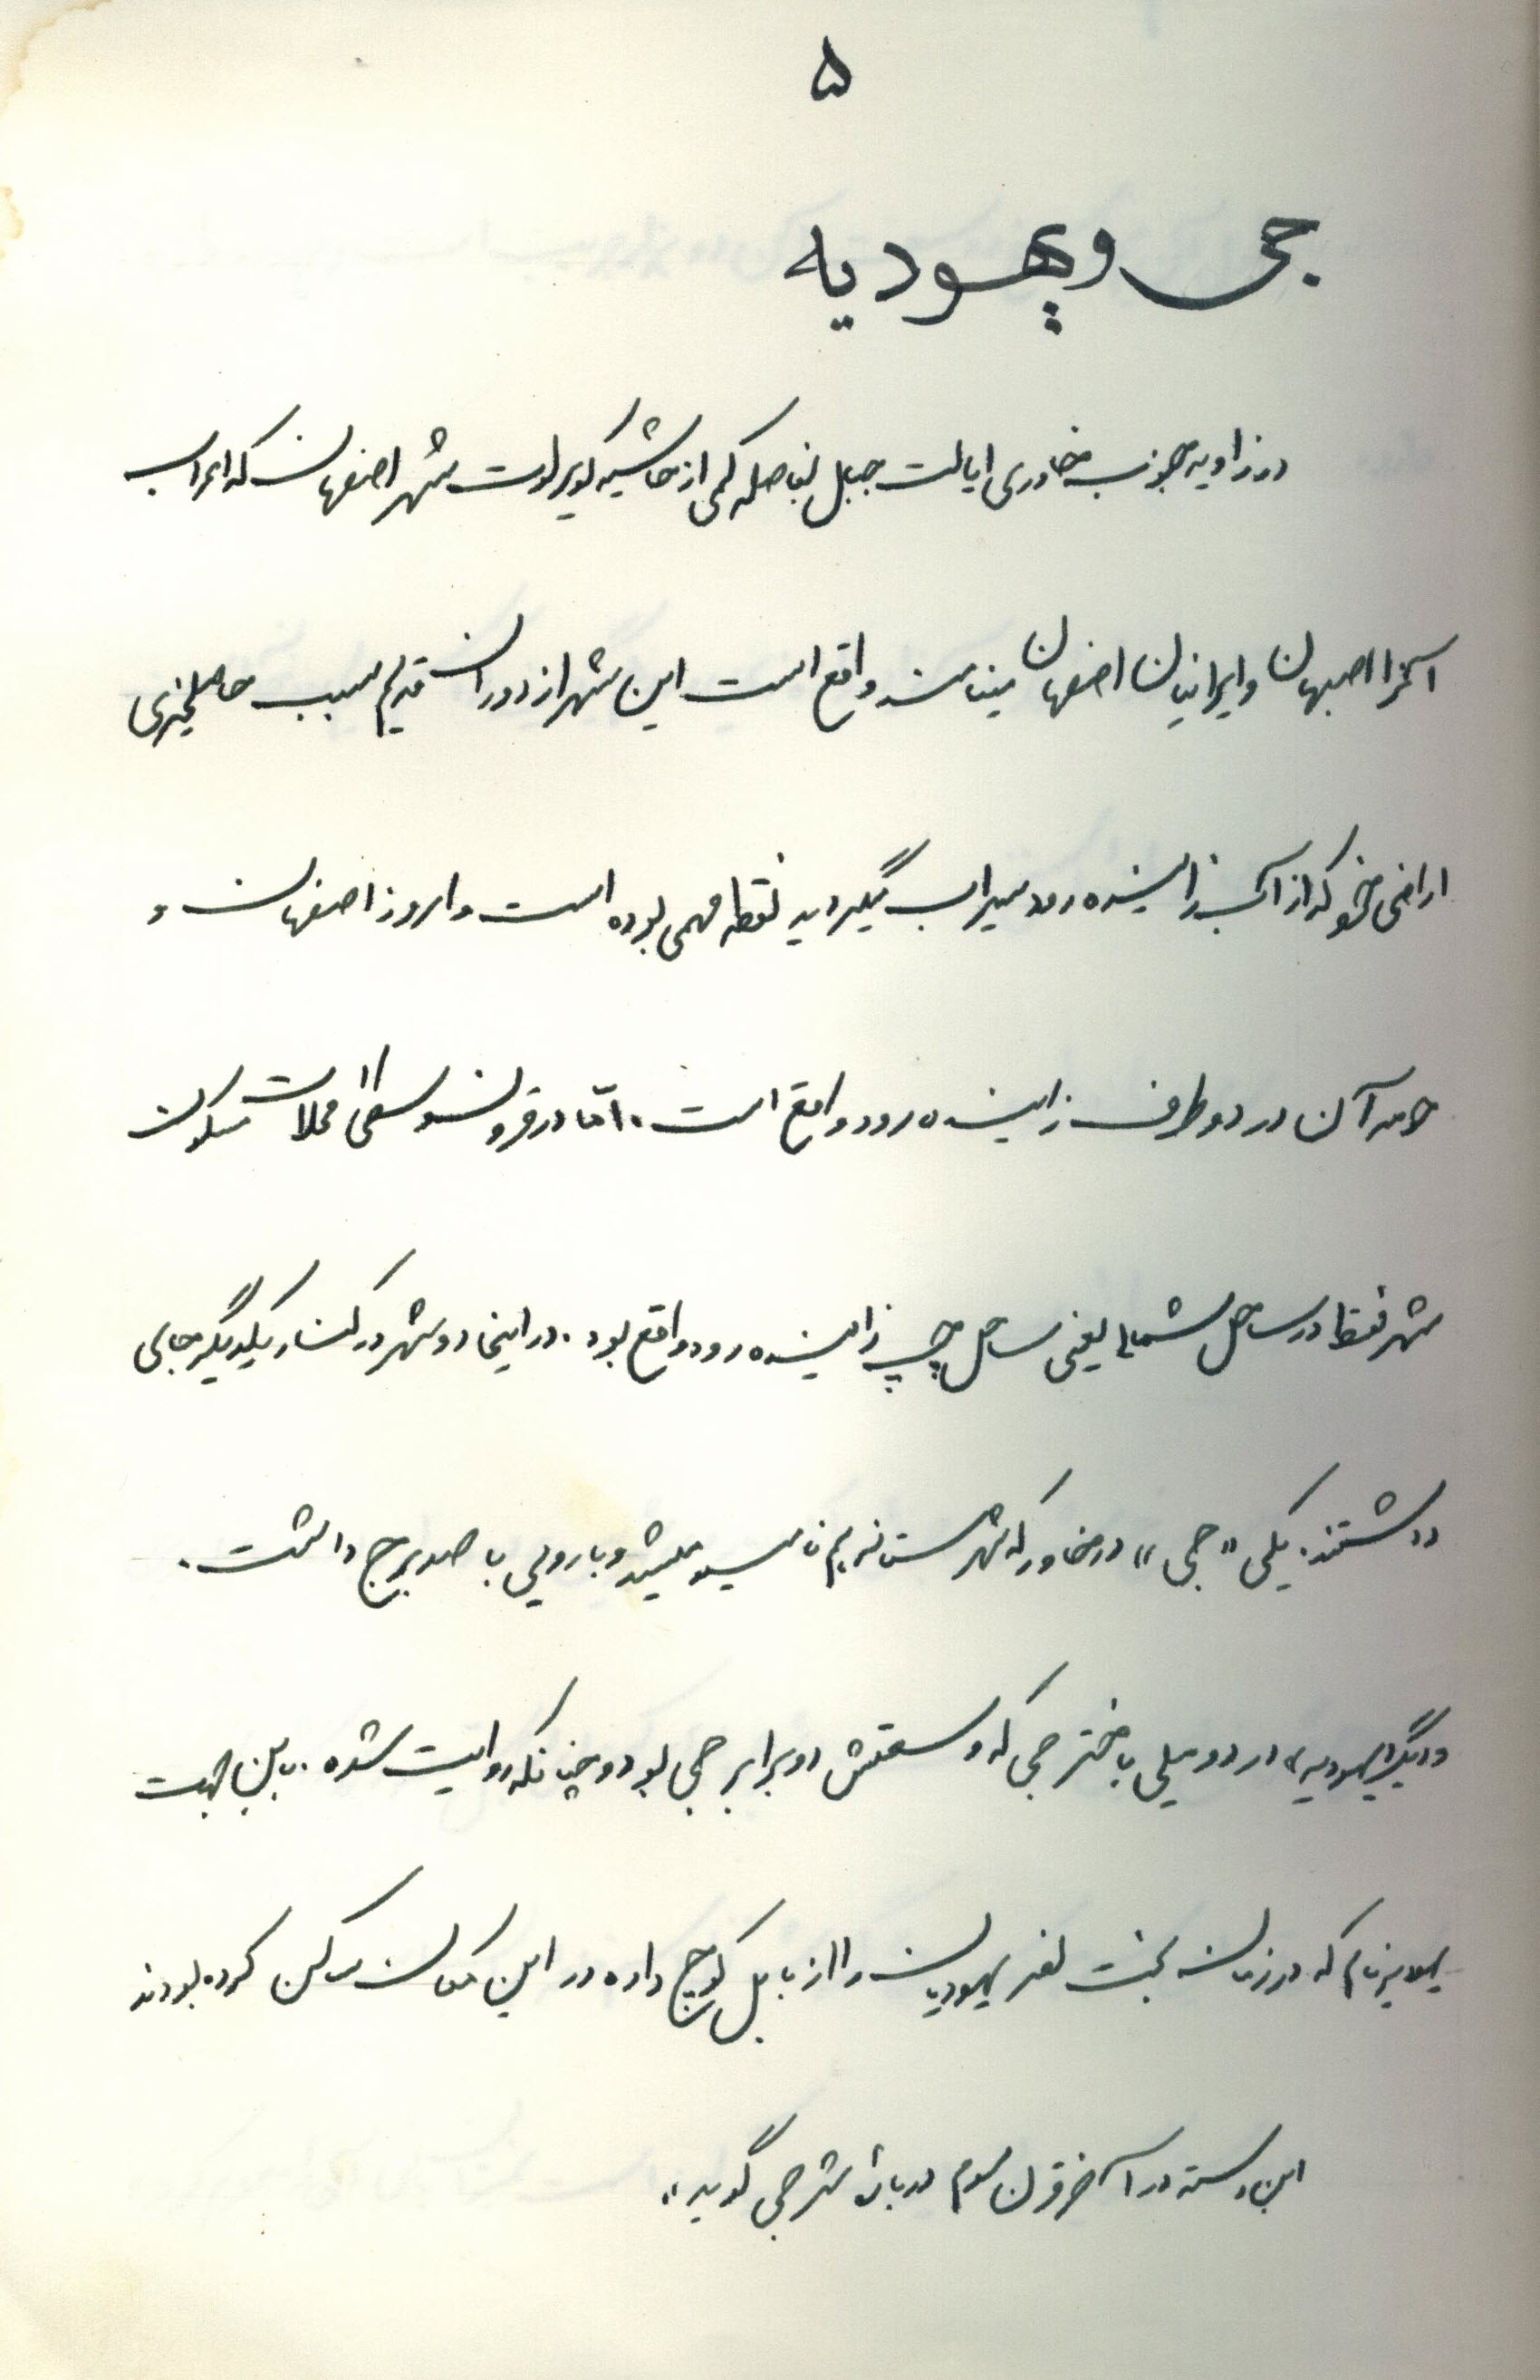 ۵
جی و یهودیه
در زاویه جنوب خاوری ایالت جبل بفاصله کمی از حاشیه کویر لوت شهر اصفهان که اعراب
آنرا اصبهان و ایرانیان اصفهان مینامند واقع است این شهر از دوران قدیم بسبب حاصلخیزی
اراضی خود که از آب زاینده رود سیراب میگردید نقطه مهمی بوده است و امروز اصفهان و
حومه آن در دو طرف زاینده رود واقع است . امّا در قرون وسطی محلات مسکون
شهر فقط در ساحل شمالی یعنی ساحل چپ زاینده رود واقع بود . در اینجا دو شهر در کنار یکدیگر جای
داشتند . یکی «جی» در خاور که شهرستانه هم نامیده میشد و بارویی با صد برج داشت .
و دیگر «یهودیه» در دو میلی باختر جی که وسعتش دو برابر جی بود و چنانکه روایت شده . باین جهت
یهودیه نام که در زمان بخت نصر یهودیان را از بابل کوچ داده در این مکان ساکن کرده بودند
ابن رسته در آخر قرن سوم درباره شهر جی گوید «